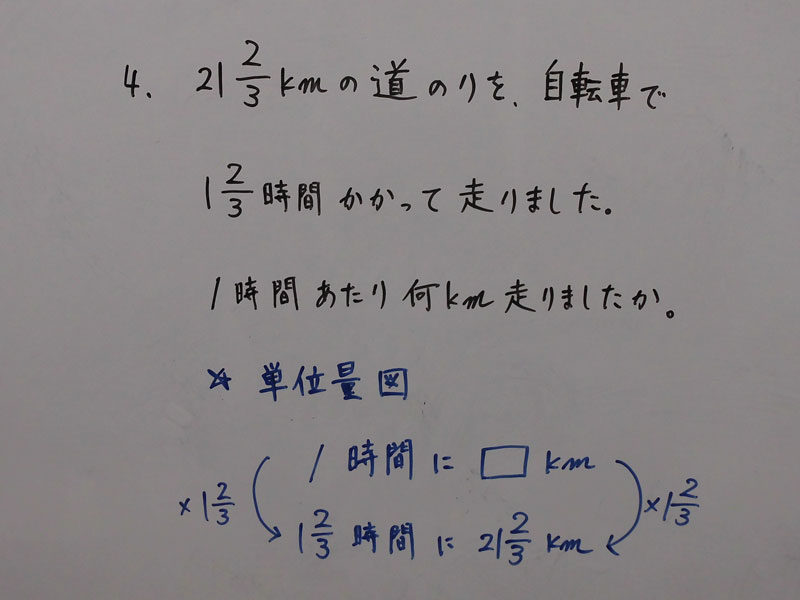 4. 21 2/3 kmの道のりを、自転車で
1 2/3 時間かかって走りました。
1時間あたり何km走りましたか。
☆ 単位量図
1 時間に □ km
×1 2/3 ×1 2/3
1 2/3 時間に 21 2/3 km